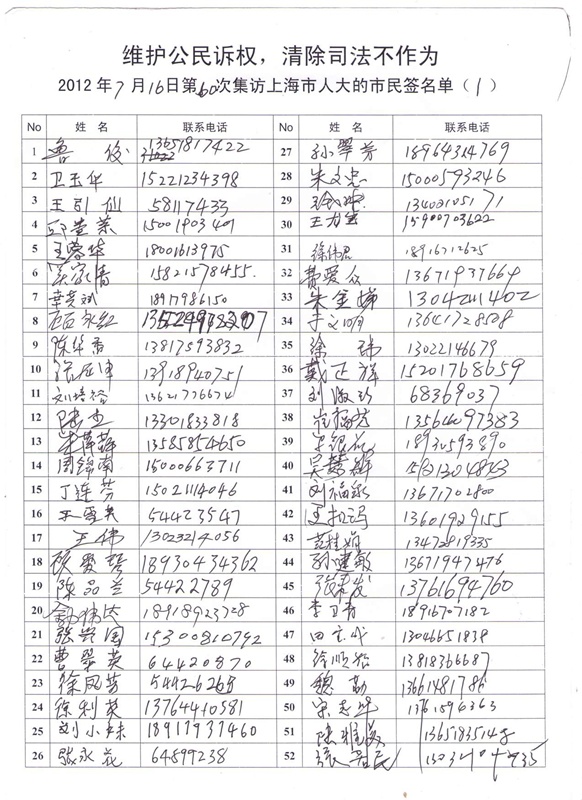 维护公民诉权，清除司法不作为
2012年7月16日第60次集访上海市人大的市民签名单（1）
No 姓 名 联系电话 No 姓 名 联系电话
1 鲁俊 13651817422 27 孙翠芳 18964314769
2 卫玉华 15221234398 28 朱文忠 15000593246
3 王引仙 58117433 29 13402105171
4 15001903401 30 15900703622
5 王蓉华 18001613975 31 徐伟君 18916712625
6 15821578455 32 费爱众 13671937664
7 18917986150 33 朱金娣 13042111402
8 34 于文明 13641728508
9 陈华香 13817593832 35 徐 13022146679
10 13918940751 36 戴正辉 15201768659
11 刘培裕 13621776674 37 刘淑珍 68369037
12 陆杰 13301833818 38 13564097383
13 朱萍 13585854650 39 李银花 18930593890
14 周锦南 15000663711 40 吴慧群
15 丁连芬 15021114046 41 刘福泉 13671702800
16 54423547 42 13601929155
17 王伟 13023214056 43 13472819335
18 顾爱琦 18930434362 44 孙建敏 13671947476
19 陈品兰 54422789 45 13761694760
20 18918923728 46 李卫青 18916707182
21 张兴国 15300810792 47 田 13046651838
22 曹翠英 64420870 48 徐顺 13818366687
23 徐凤芳 54426268 49 魏勤 13661481786
24 徐利英 13764410581 50 宋 13761596363
25 刘小妹 18917937460 51 陈
26 张永花 64899238 52 张